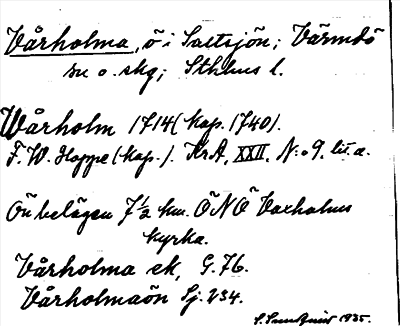 Vårholma, ö i Saltsjön; Värmdö
sn o. skg; Sthlms l.
Wårholm 1714 (kop. 1740).
F. W. Hoppe (kop.). KrA, XXII, N:o 9, lit. a.
Ön belägen 7½ km. ÖNÖ Vaxholms
kyrka.
Vårholma ek, G. 76.
Vårholmaön Sj. 234.
1935.